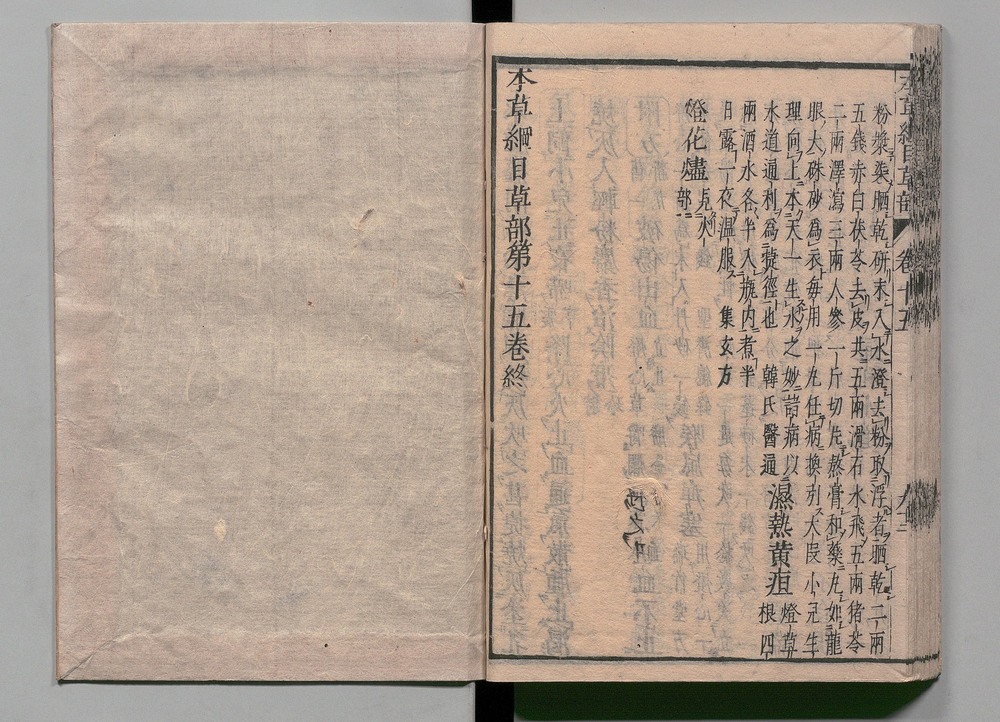 粉漿染晒乾研末入水澄去粉取浮者晒乾二兩
五錢赤白茯苓去皮共五兩滑石水飛五兩猪苓
二兩澤瀉三兩人參一斤切片熬膏和藥丸如龍
眼大硃砂爲衣毎用一丸任病換引大叚小兒生
理向上本天一生水之妙諸病以燈草
水道通利爲捷徑也韓氏醫通濕熱黄疸根四
兩酒水各半入瓶内煮半
日露一夜温服集玄方
燈花燼
見火
部
本草綱目草部第十五卷終
本草綱目草部
卷十五